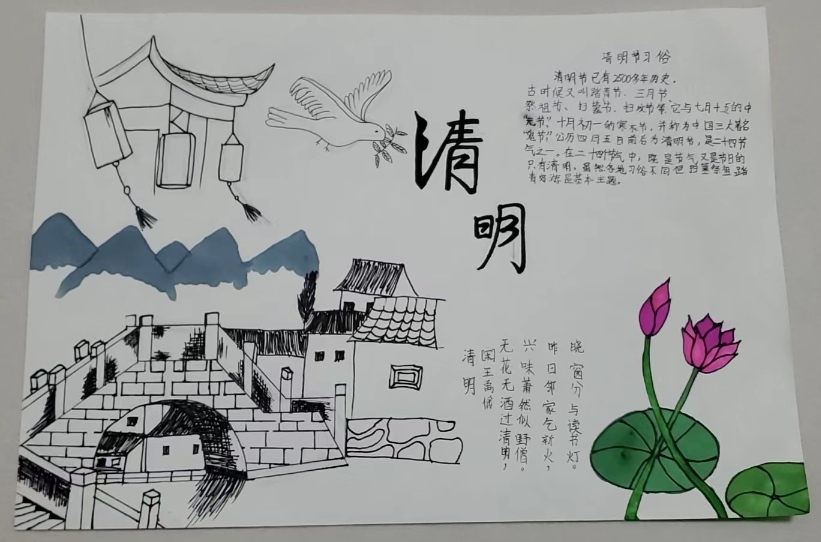 清明
清明节习俗
清明节已有2500多年历史。
古时候又叫踏青节、三月节、
祭祖节、扫墓节、扫坟节等。它与七月十五的中
元节”，十月初一的寒衣节，并称为中国三大著名
“鬼节”，公历四月五日前后为清明节，是二十四节
气之一。在二十四节气中，既是节气又是节日的
只有清明。虽然各地习俗不同但扫墓祭祖踏
青郊游是基本主题。
晓窗分与读书灯。
昨日邻家乞新火，
兴味萧然似野僧。
无花无酒过清明，
国王禹偁
清明